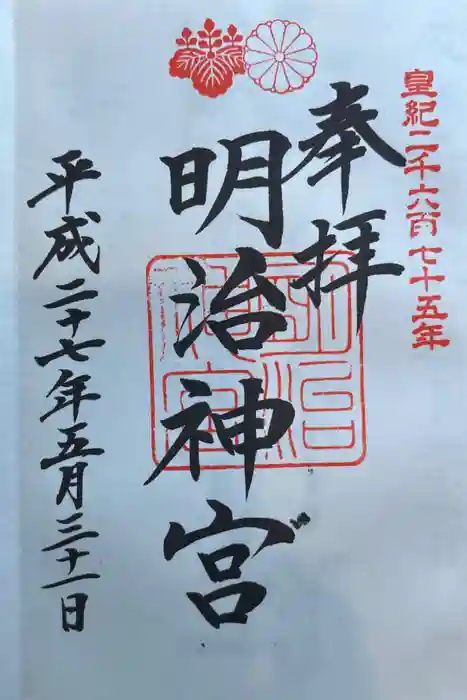 皇紀二千六百七十五年
奉拝
明治神宮
平成二十七年五月三十一日
明治神宮